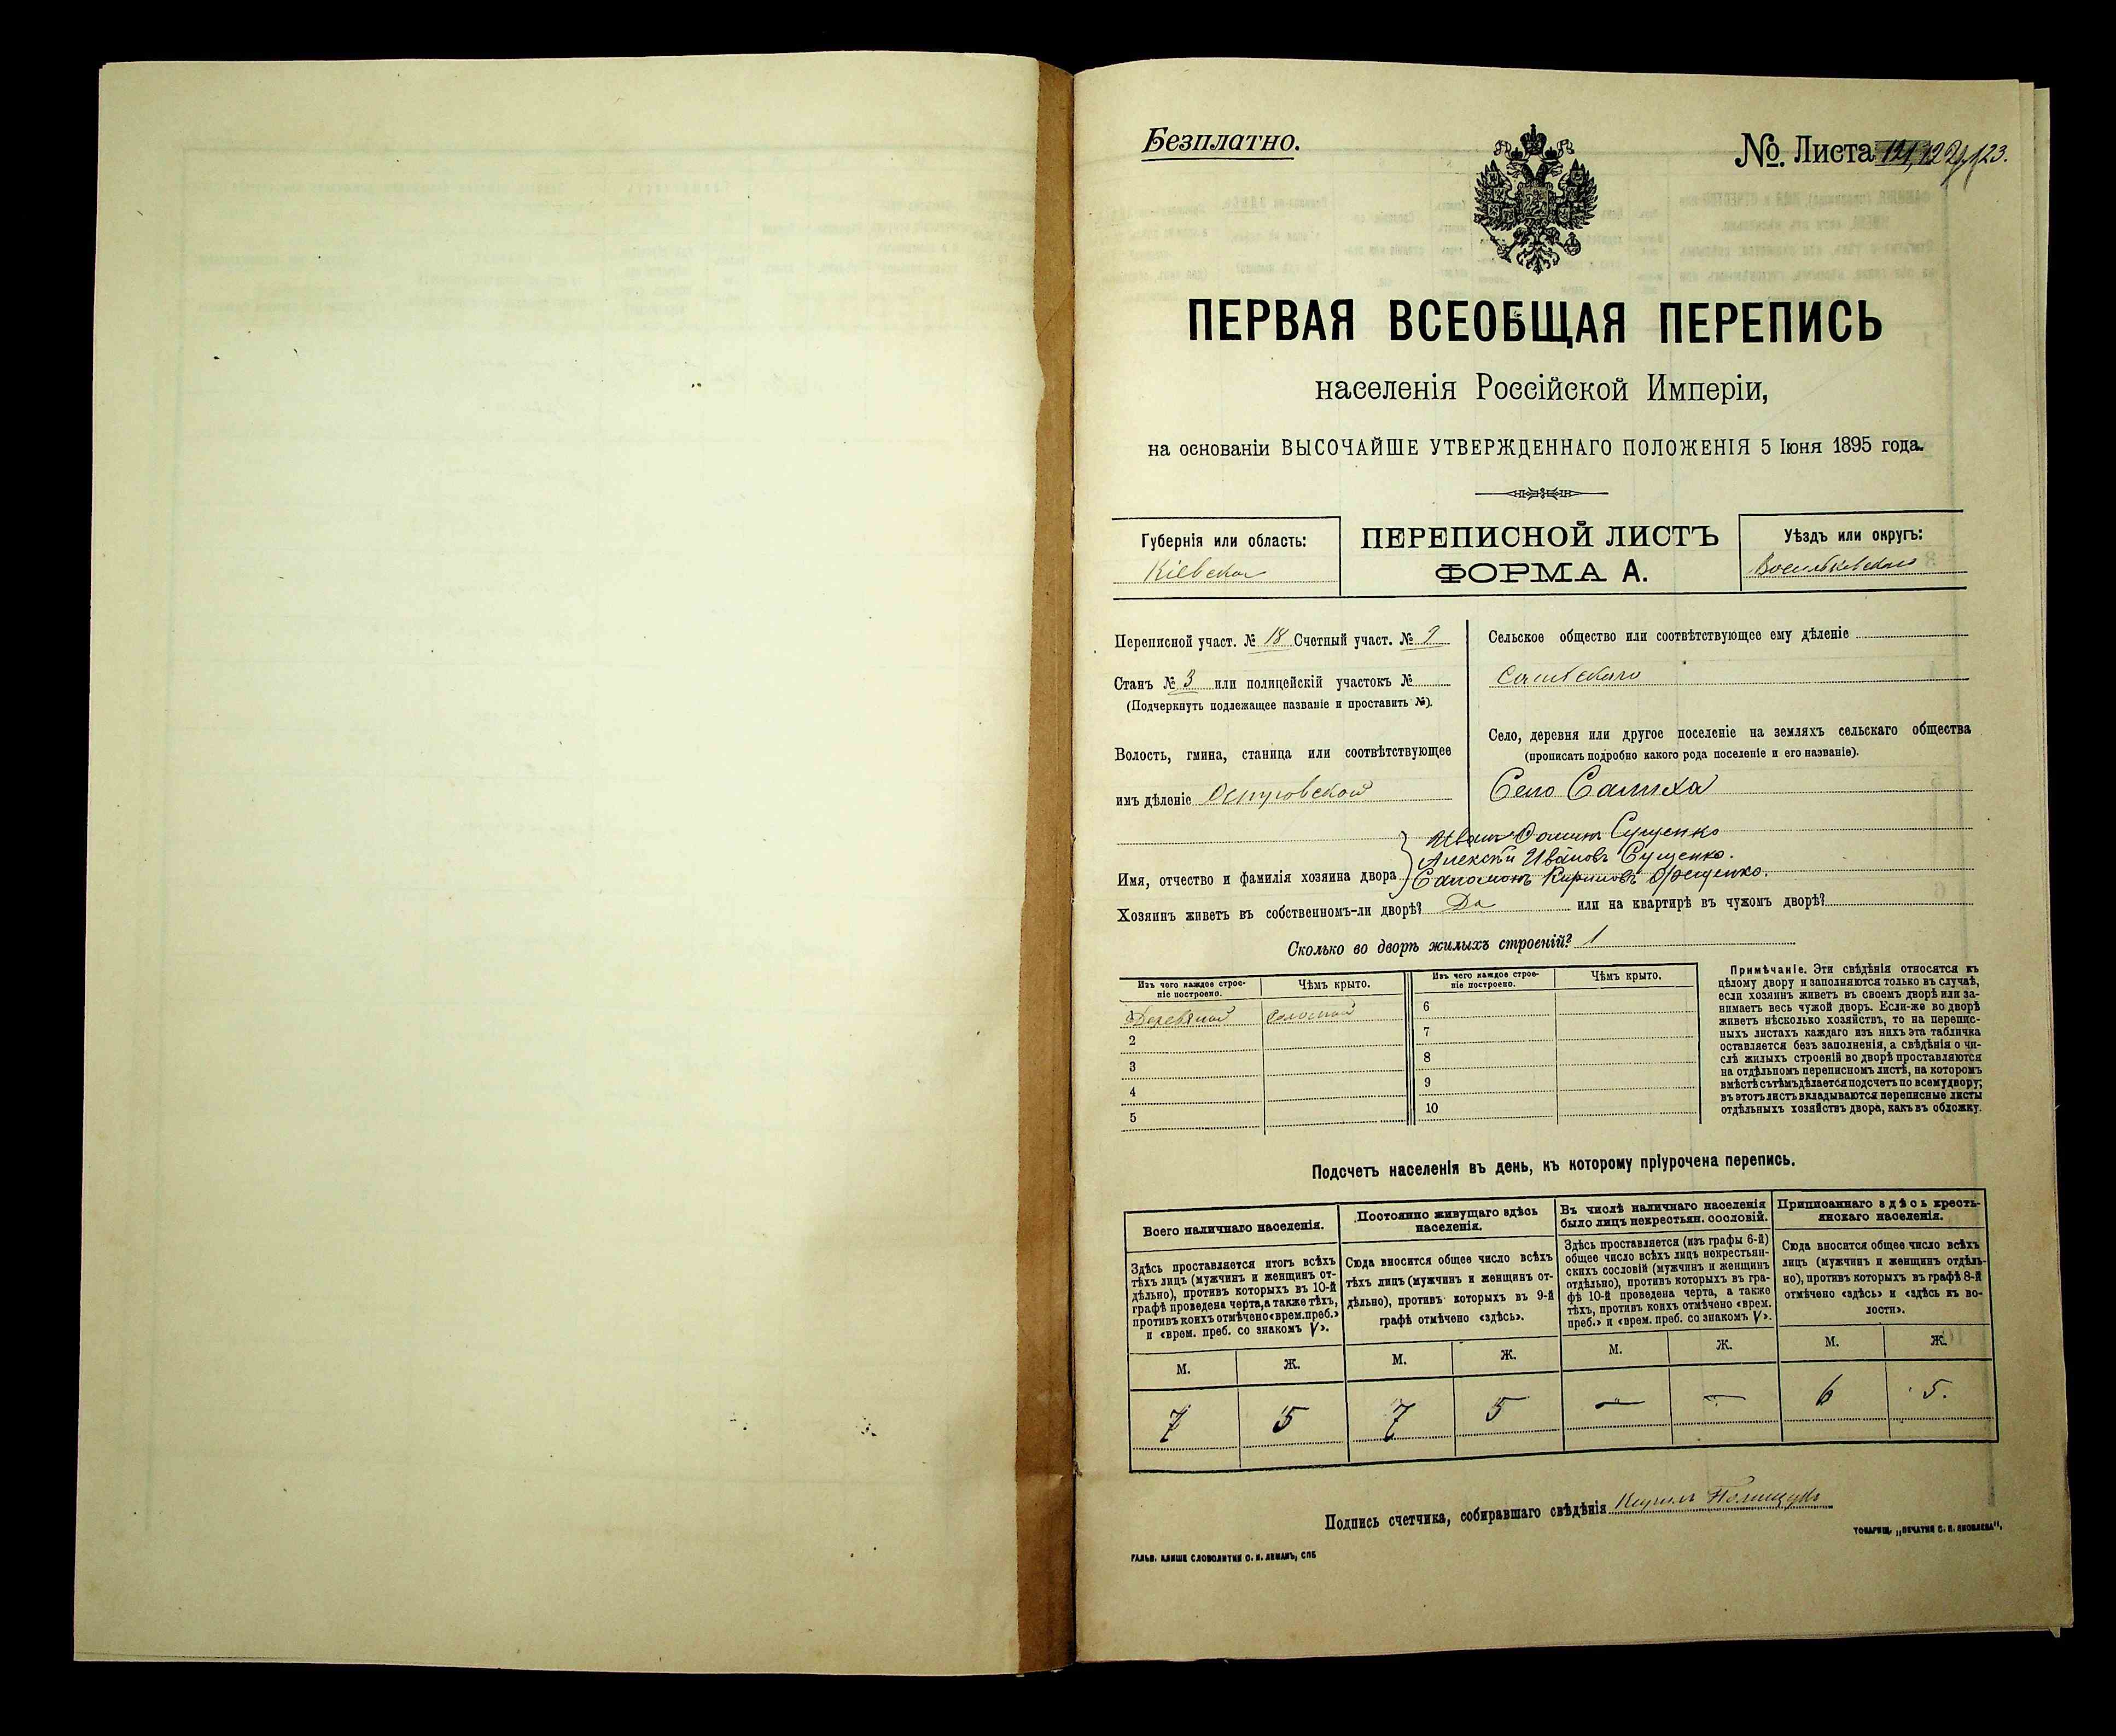 Безплатно.
№ Листа 121, 122, 123.
ПЕРВАЯ ВСЕОБЩАЯ ПЕРЕПИСЬ
населенія Россійской Имперіи,
на основаніи ВЫСОЧАЙШЕ УТВЕРЖДЕННАГО ПОЛОЖЕНІЯ 5 Іюня 1895 года.
Губернія или область:
Кіевская
ПЕРЕПИСНОЙ ЛИСТЪ
ФОРМА А.
Уѣздъ или округъ:
Переписной участ. № 18 Счетный участ. № 9
Станъ № 3 или полицейскій участокъ №
(Подчеркнуть подлежащее названіе и проставить №).
Волость, гмина, станица или соотвѣтствующее
имъ дѣленіе Островской
Сельское общество или соотвѣтствующее ему дѣленіе
Село, деревня или другое поселеніе на земляхъ сельскаго общества
(прописать подробно какого рода поселеніе и его названіе).
Село Салиха
Иванъ Сущенко
Алексѣй Ивановъ Сущенко.
Имя, отчество и фамилія хозяина двора Кириловъ
Хозяинъ живетъ въ собственномъ-ли дворѣ? Да или на квартирѣ въ чужомъ дворѣ?
Сколько во дворѣ жилыхъ строеній? 1
Изъ чего каждое строе-
ніе построено.
Чѣмъ крыто.
Изъ чего каждое строе-
ніе построено.
Чѣмъ крыто.
1 Деревяной Соломой
2
3
4
5
6
7
8
9
10
Примѣчаніе. Эти свѣдѣнія относятся къ
цѣлому двору и заполняются только въ случаѣ,
если хозяинъ живетъ въ своемъ дворѣ или за-
нимаетъ весь чужой дворъ. Если-же во дворѣ
живетъ нѣсколько хозяйствъ, то на перепис-
ныхъ листахъ каждаго изъ нихъ эта табличка
оставляется безъ заполненія, а свѣдѣнія о чи-
слѣ жилыхъ строеній во дворѣ проставляются
на отдѣльномъ переписномъ листѣ, на которомъ
вмѣстѣ съ тѣмъ дѣлается подсчетъ по всему двору;
въ этотъ листъ вкладываются переписные листы
отдѣльныхъ хозяйствъ двора, какъ въ обложку.
Подсчетъ населенія въ день, къ которому пріурочена перепись.
Всего наличнаго населенія.
Здѣсь проставляется итогъ всѣхъ
тѣхъ лицъ (мужчинъ и женщинъ от-
дѣльно), противъ которыхъ въ 10-й
графѣ проведена черта, а также тѣхъ,
противъ коихъ отмѣчено «врем. преб.»
и «врем. преб. со знакомъ V».
М. Ж.
7 5
Постоянно живущаго здѣсь
населенія.
Сюда вносится общее число всѣхъ
тѣхъ лицъ (мужчинъ и женщинъ от-
дѣльно), противъ которыхъ въ 9-й
графѣ отмѣчено «здѣсь».
М. Ж.
7 5
Въ числѣ наличнаго населенія
было лицъ некрестьян. сословій.
Здѣсь проставляется (изъ графы 6-й)
общее число всѣхъ лицъ некрестьян-
скихъ сословій (мужчинъ и женщинъ
отдѣльно), противъ которыхъ въ гра-
фѣ 10-й проведена черта, а также
тѣхъ, противъ коихъ отмѣчено «врем.
преб.» и «врем. преб. со знакомъ V».
М. Ж.
— —
Приписаннаго здѣсь кресть-
янскаго населенія.
Сюда вносится общее число всѣхъ
лицъ (мужчинъ и женщинъ отдѣль-
но), противъ которыхъ въ графѣ 8-й
отмѣчено «здѣсь» и «здѣсь къ во-
лости».
М. Ж.
6 5.
Подпись счетчика, собиравшаго свѣдѣнія Кирилъ Полищукъ
ТОВАРИЩ. „ПЕЧАТНЯ С. П. ЯКОВЛЕВА“.
ГАЛЬВ. КЛИШЕ СЛОВОЛИТНИ О. И. ЛЕМАНЪ, СПБ